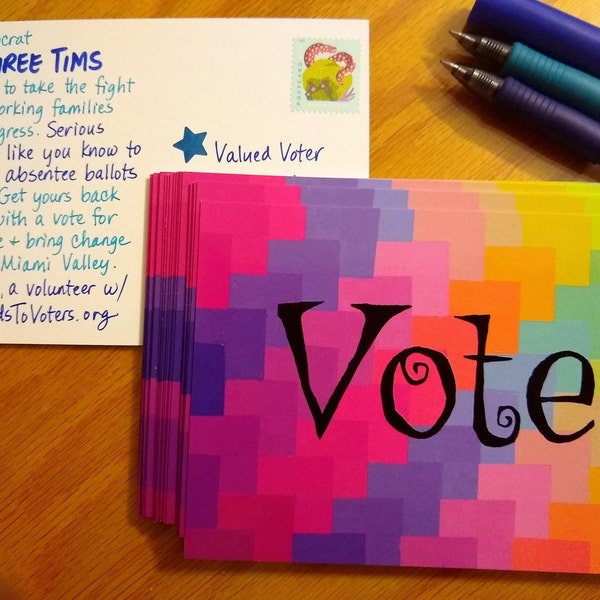 ocrat
REE TIMS
to take the fight
orking families
gress. Serious
like you know to
absentee ballots
Get yours back
with a vote for
+ bring change
Miami Valley.
, a volunteer w/
dsToVoters.org
Valued Voter
Vote